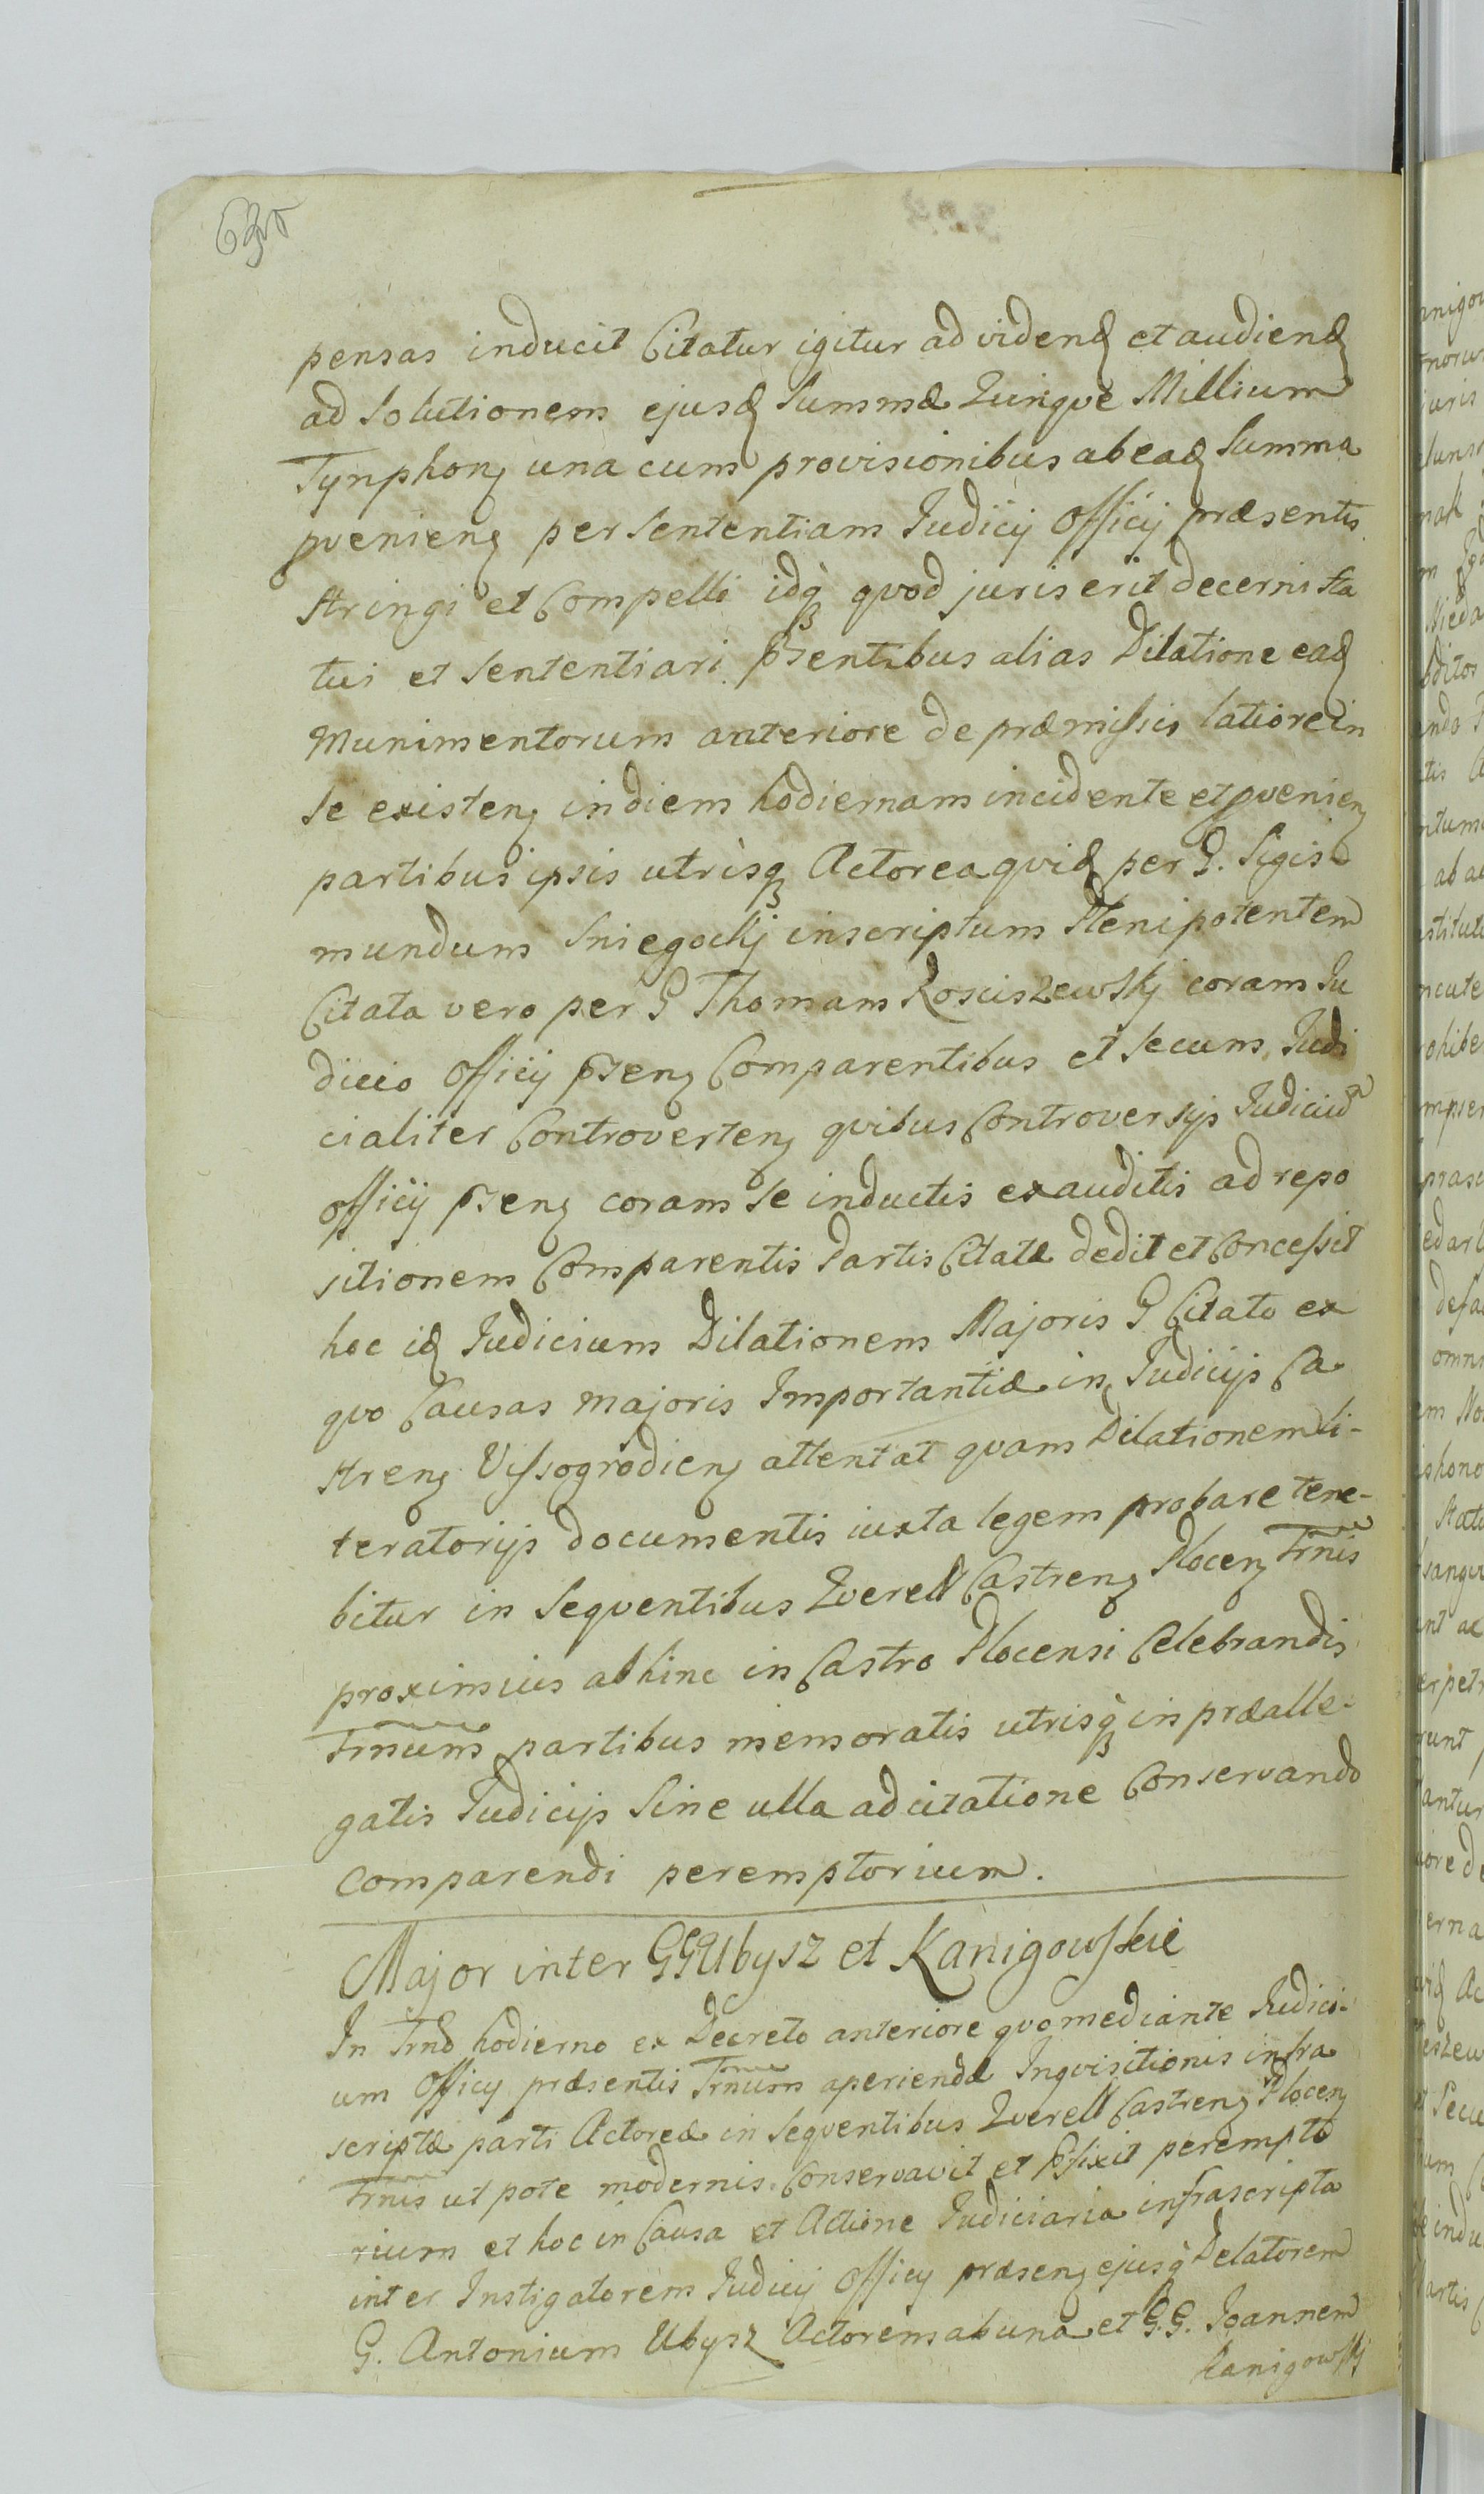 63v
pensas inducit Citatur igitur ad videnđ et audienđ
ad Solutionem ejusđ Summæ Quinqve Millium
Tynphonꝫ una cum provisionibus ab eađ Summa
pvenienꝫ per Sententiam Judicij Officij præsentis
stringi et Compelli idqꝫ qvod juris erit decerni sta
tui et Sententiari. Pꝛentibus alias Dilatione eađ
Munimentorum anteriore de præmissis latiore in
se existenꝫ in diem hodiernam incidente et pvenienꝫ
partibus ipsis utrisqꝫ Actorea qviđ per G. Sigis-
mundum Sniegockj inscriptum Plenipotentem
Citata vero per G Thomam Rosciszewskj coram Ju
dicio Officij pꝛenꝫ Comparentibus et Secum Judi
cialiter Controvertenꝫ qvibus Controversijs Judiciũ
officij pꝛenꝫ coram Se inductis exauditis ad repo
sitionem Comparentis Partis Citatæ dedit et Concessit
hoc iđ Judicium Dilationem Majoris G Citato ex
qvo Causas majoris Importantiæ in Judicijs Ca-
strenꝫ Vissogrodienꝫ attentat qvam Dilationem li-
teratorijs documentis iuxta legem probare tene-
bitur in Seqventibus Qverell Castrenꝫ Plocenꝫ Trñis
proximius abhinc in Castro Plocensi Celebrandis
Trñum partibus memoratis utrisqꝫ in prædalle-
gatis Judicijs Sine ulla adcitatione Conservando
comparendi peremptorium.
Major inter GG Ubysz et Kanigowskie
In Trñô hodierno ex Decreto anteriore qvo mediante Judici-
um Officij præsentis Trñum aperiendæ Inqvisitionis infra
scriptæ parti Actoreæ in Seqventibus Qverell Castrenꝫ Plocenꝫ
Trñis ut pote modernis Conservavit et Pfixit perempto
rium et hoc in Causa et Actione Judiciaria infrascripta
inter Instigatorem Judicij Officij præsenꝫ ejusq̃ Delatorem
G. Antonium Ubysz Actorem ab una et G.G. Joannem
Kanigowskj